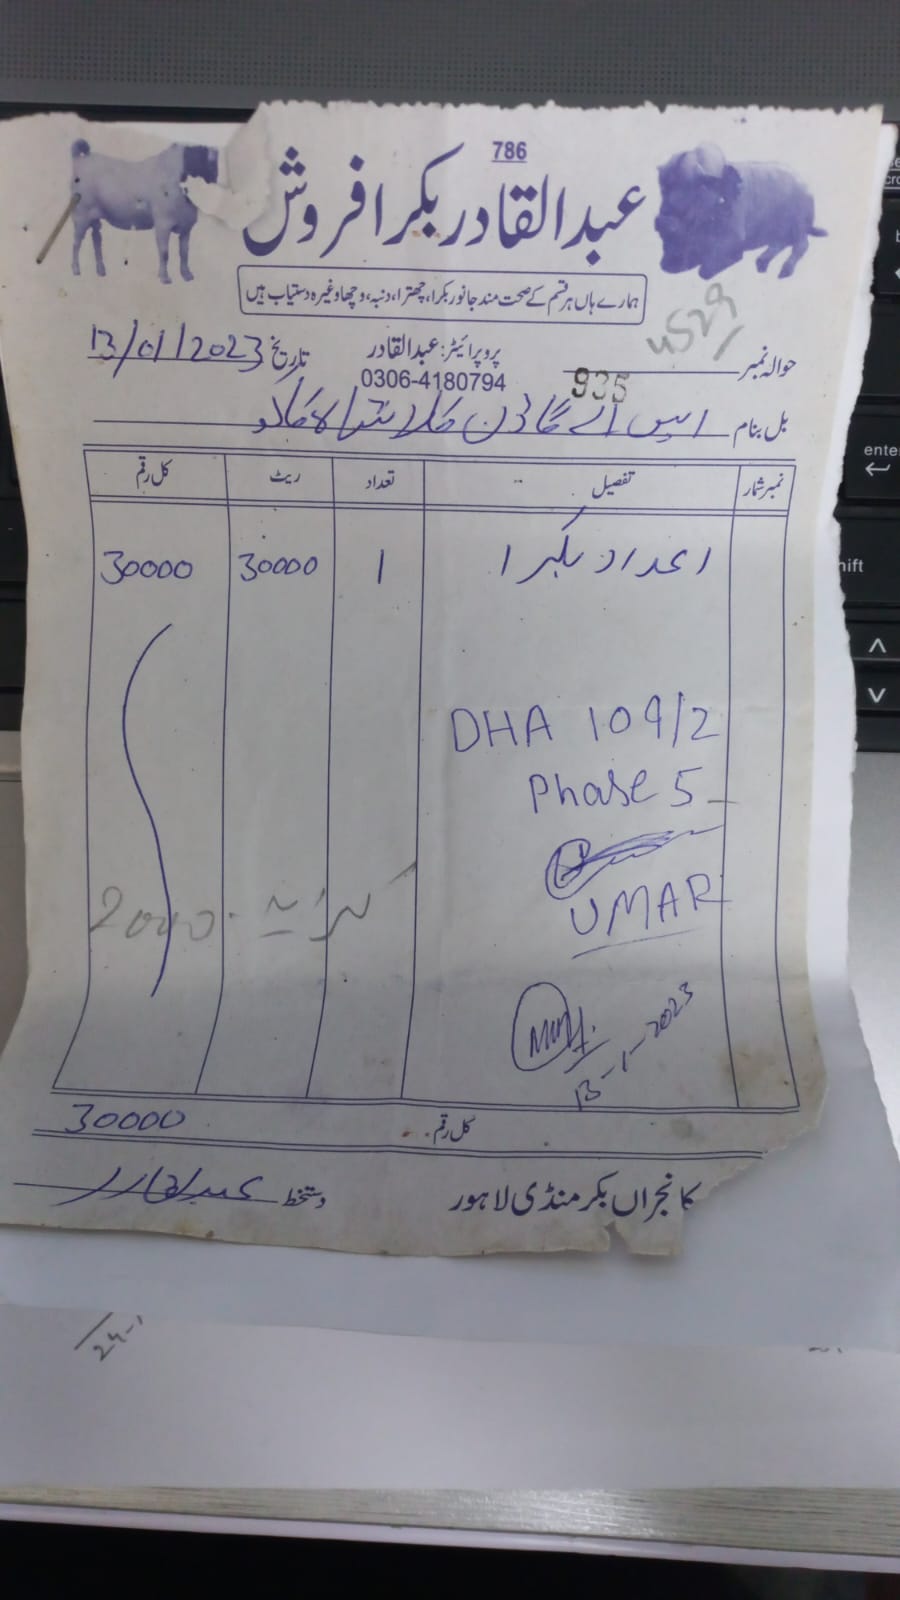 786
عبدالقادر بکرا فروش
ہمارے ہاں ہر قسم کے صحت مند جانور بکرا، چھترا، دنبہ، وچھا وغیرہ دستیاب ہیں
4529
حوالہ نمبر 935
پروپرائیٹر: عبدالقادر
0306-4180794
تاریخ 13/01/2023
بل بنام ایس اے گارڈن
نمبر شمار تفصیل تعداد ریٹ کل رقم
1 عدد بکرا 1 30000 30000
DHA 109/2
Phase 5
UMAR
کرایہ 2000
13-1-2023
کل رقم 30000
کانجراں بکر منڈی لاہور
دستخط عبدالقادر
24-1